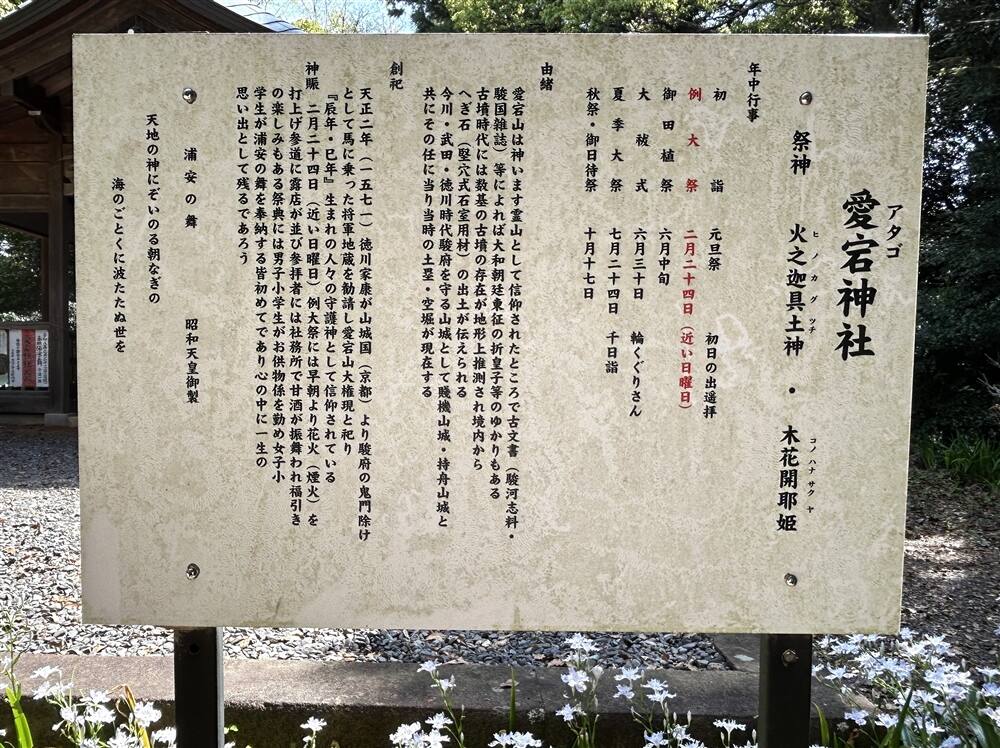 アタゴ
愛宕神社
祭神　火之迦具土神　・　木花開耶姫
ヒノカグツチ　コノハナサクヤ
年中行事
初詣　元旦祭　初日の出遥拝
例大祭　二月二十四日（近い日曜日）
御田植祭　六月中旬
大祓式　六月三十日　輪くぐりさん
夏季大祭　七月二十四日　千日詣
秋祭・御日待祭　十月十七日
由緒
愛宕山は神います霊山として信仰されたところで古文書（駿河志料・
駿国雑誌）等によれば大和朝廷東征の折皇子等のゆかりもある
古墳時代には数基の古墳の存在が地形上推測され境内から
へぎ石（堅穴式石室用材）の出土が伝えられる
今川・武田・徳川時代駿府を守る山城として賤機山城・持舟山城と
共にその任に当り当時の土塁・空堀が現在する
創祀
天正二年（一五七一）徳川家康が山城国（京都）より駿府の鬼門除け
として馬に乗った将軍地蔵を勧請し愛宕山大権現と祀り
『辰年・巳年』生まれの人々の守護神として信仰されている
神賑　二月二十四日（近い日曜日）例大祭には早朝より花火（煙火）を
打上げ参道に露店が並び参拝者には社務所で甘酒が振舞われ福引き
の楽しみもある祭典には男子小学生がお供物係を勤め女子小
学生が浦安の舞を奉納する皆初めてであり心の中に一生の
思い出として残るであろう
浦安の舞　昭和天皇御製
天地の神にぞいのる朝なぎの
海のごとくに波たたぬ世を